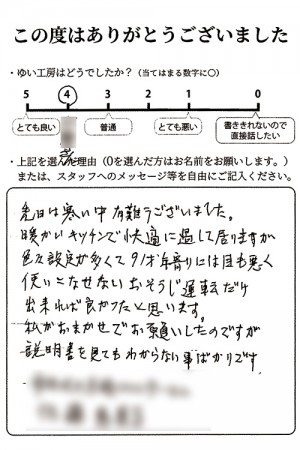 この度はありがとうございました
・ゆい工房はどうでしたか？（当てはまる数字に○）
5 4 3 2 1 0
とても良い 普通 とても悪い 書ききれないので直接話したい
・上記を選んだ理由（0を選んだ方はお名前をお願いします。）
または、スタッフへのメッセージ等を自由にご記入ください。
先日は寒い中有難うございました。
暖かいキッチンで快適に過して居りますが
色々設定が多くて91才年寄りには目も悪く
使いこなせないおそうじ運転だけ
出来れば良かったと思います。
私がおまかせでお願いしたのですが
説明書を見てもわからない事ばかりです